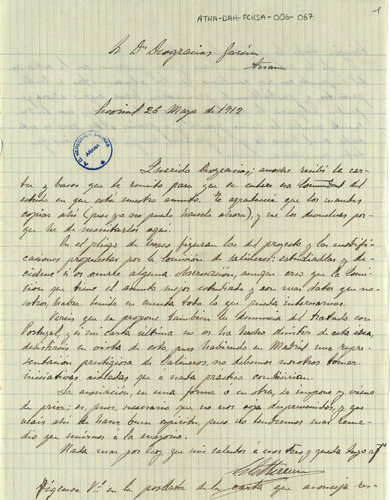 ATHA-DAH-FCHSA-006-067
1
Sr. Dn. Deogracias
Añana
26 Mayo de 1912
AÑANA
Querido Deogracias; anoche recibí la car-
ta y bases que te remito para que se entere esa Comunidad del
estado en que está nuestro asunto. Te agradeceria que los mandes
copiar ahí (pues yo no puedo hacerlo ahora), y me los devuelvas por-
que he de necesitarlos aquí.
En el pliego de bases figuran las del proyecto y las modifi-
caciones propuestas por la Comisión de salineros: estudiadlas y de-
cidme si os ocurre alguna observacion, aunque creo que la Comi-
sion que tiene el asunto mejor estudiado y con mas datos que no-
sotros, habrá tenido en cuenta todo lo que pueda interesarnos.
Vereis que se propone también la denuncia del tratado con
Portugal, y si mi carta ultima no os ha hecho desistir de esta idea,
desistireis en vista de esto, pues habiendo en Madrid una repre-
sentacion prestigiosa de salineros, no debemos nosotros tomar
iniciativas aisladas que á nada practico conducirian.
La asociacion, en una forma ó en otra, se impone y viene
de prisa; es, pues, necesario que no nos coja desprevenidos, y que
ahi de hacer buen espiritu, pues no tendremos mas reme-
dio que unirnos á la mayoria.
Nada mas por hoy; mis saludos á esos Sres. y queda tuyo affº
Fijense Vs. en la postdata de la carta que aconseja